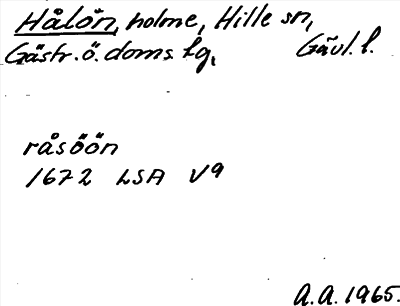 Hålön, holme, Hille sn,
Gästr. ö. doms. lg, Gävl. l.
råsöön
1672 LSA V9
A.A. 1965.